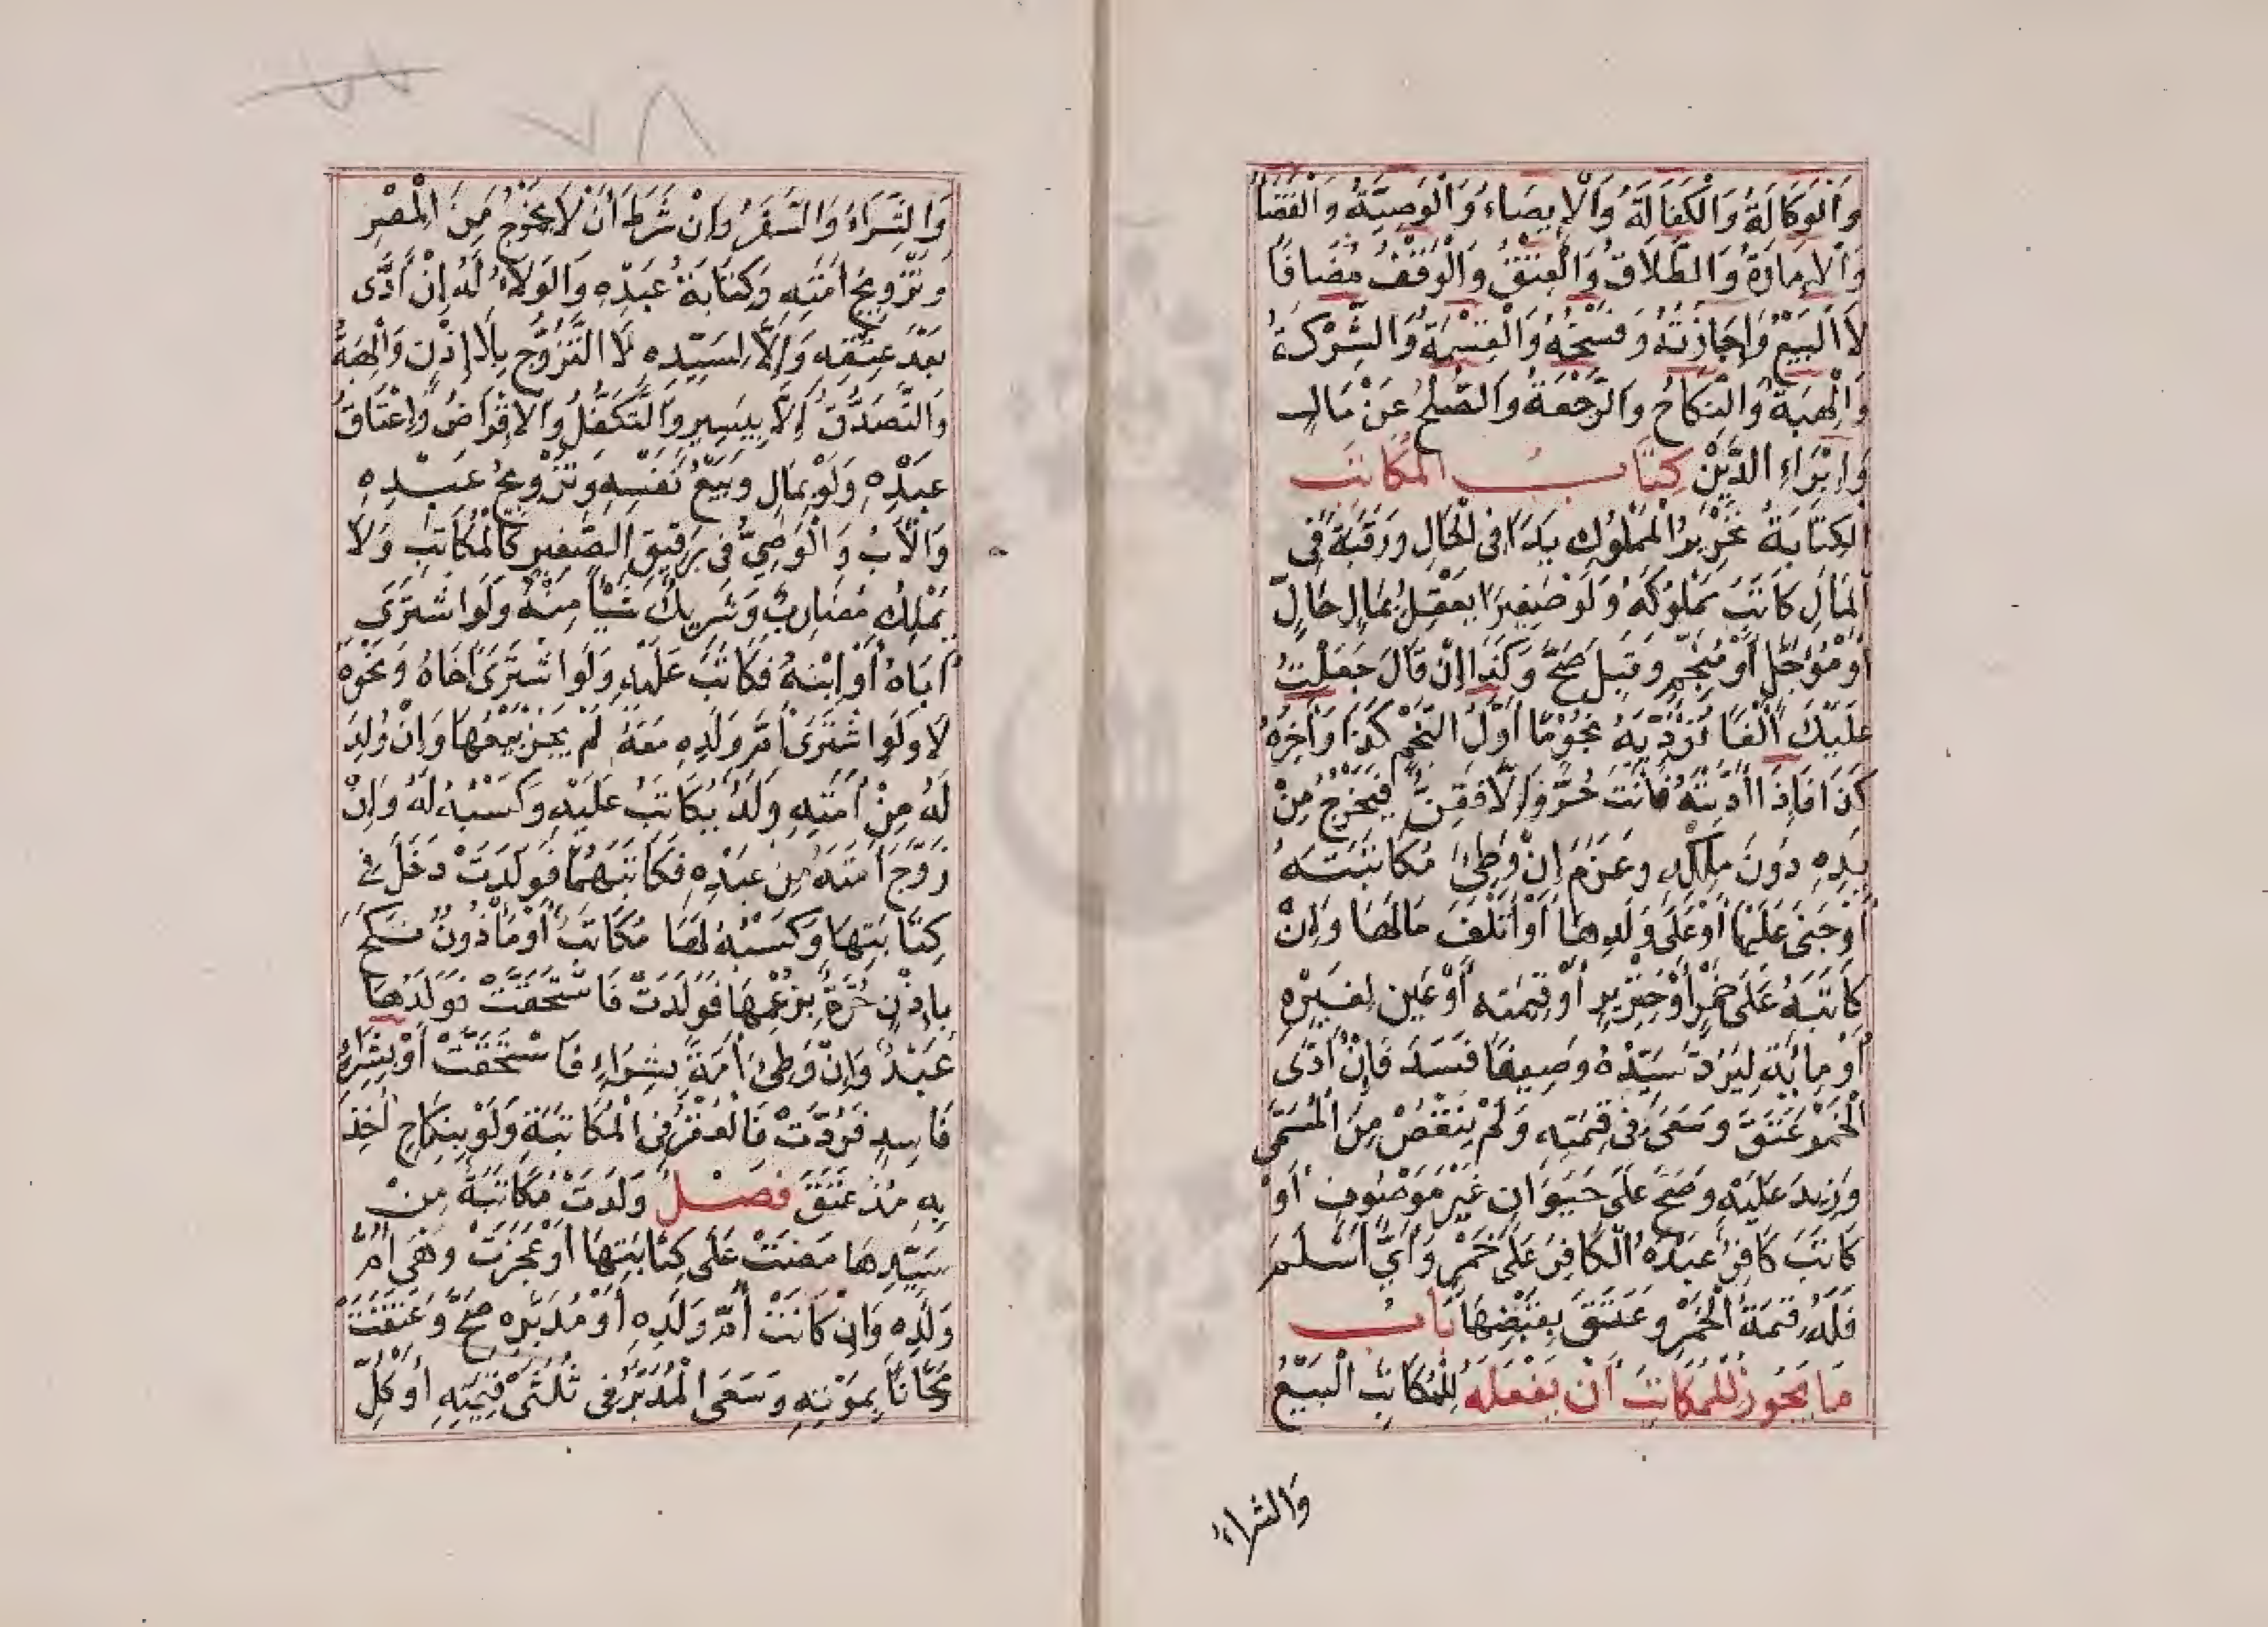 وَالْوَكَالَةُ وَالْكَفَالَةُ وَالْإِيصَاءُ وَالْوَصِيَّةُ وَالْقَضَاءُ
وَالْإِمَارَةُ وَالطَّلَاقُ وَالْعِتْقُ وَالْوَقْفُ مُضَافًا
لَا الْبَيْعُ وَإِجَازَتُهُ وَفَسْخُهُ وَالْقِسْمَةُ وَالشِّرْكَةُ
وَالْهِبَةُ وَالنِّكَاحُ وَالرَّجْعَةُ وَالصُّلْحُ عَنْ مَالٍ
وَإِبْرَاءِ الدَّيْنِ كِتَابُ الْمُكَاتَبِ
الْكِتَابَةُ تَحْرِيرُ الْمَمْلُوكِ يَدًا فِي الْحَالِ وَرَقَبَةً فِي
الْمَالِ كَاتَبَ مَمْلُوكَهُ وَلَوْ صَغِيرًا يَعْقِلُ بِمَالٍ حَالٍّ
أَوْ مُؤَجَّلٍ أَوْ مُنَجَّمٍ وَقَبِلَ صَحَّ وَكَذَا إِنْ قَالَ جَعَلْتُ
عَلَيْكَ أَلْفًا تُؤَدِّيهِ نُجُومًا أَوَّلُ النَّجْمِ كَذَا وَآخِرُهُ
كَذَا فَإِذَا أَدَّيْتَهُ فَأَنْتَ حُرٌّ وَإِلَّا فَقِنٌّ فَيَخْرُجُ مِنْ
يَدِهِ دُونَ مِلْكِهِ وَغَرِمَ إِنْ وَطِئَ مُكَاتَبَتَهُ
أَوْ جَنَى عَلَيْهَا أَوْ عَلَى وَلَدِهَا أَوْ أَتْلَفَ مَالَهَا وَإِنْ
كَاتَبَهُ عَلَى خَمْرٍ أَوْ خِنْزِيرٍ أَوْ قِيمَتِهِ أَوْ عَيْنٍ لِغَيْرِهِ
أَوْ مِائَةٍ لِيَرُدَّ سَيِّدُهُ وَصِيفًا فَسَدَ فَإِنْ أَدَّى
الْخَمْرَ عَتَقَ وَسَعَى فِي قِيمَتِهِ وَلَمْ يَنْقُصْ مِنَ الْمُسَمَّى
وَزِيدَ عَلَيْهِ وَصَحَّ عَلَى حَيَوَانٍ غَيْرِ مَوْصُوفٍ أَوْ
كَاتَبَ كَافِرٌ عَبْدَهُ الْكَافِرَ عَلَى خَمْرٍ وَأَيٌّ أَسْلَمَ
فَلَهُ قِيمَةُ الْخَمْرِ وَعَتَقَ بِقَبْضِهَا بَابُ
مَا يَجُوزُ لِلْمُكَاتَبِ أَنْ يَفْعَلَهُ لِلْمُكَاتَبِ الْبَيْعُ
وَالشِّرَاءُ
وَالشِّرَاءُ وَالسَّفَرُ وَإِنْ شَرَطَ أَنْ لَا يَخْرُجَ مِنَ الْمِصْرِ
وَتَزْوِيجُ أَمَتِهِ وَكِتَابَةُ عَبْدِهِ وَالْوَلَاءُ لَهُ إِنْ أَدَّى
بَعْدَ عِتْقِهِ وَإِلَّا لِسَيِّدِهِ لَا التَّزَوُّجُ بِلَا إِذْنٍ وَالْهِبَةُ
وَالتَّصَدُّقُ إِلَّا بِيَسِيرٍ وَالتَّكَفُّلُ وَالْإِقْرَاضُ وَإِعْتَاقُ
عَبْدِهِ وَلَوْ بِمَالٍ وَبَيْعُ نَفْسِهِ وَتَزْوِيجُ عَبْدِهِ
وَالْأَبُ وَالْوَصِيُّ فِي رَقِيقِ الصَّغِيرِ كَالْمُكَاتَبِ وَلَا
يَمْلِكُ مُضَارِبٌ وَشَرِيكٌ شَيْئًا مِنْهُ وَلَوِ اشْتَرَى
أَبَاهُ أَوِ ابْنَهُ فَكَاتَبَ عَلَيْهِ وَلَوِ اشْتَرَى أَخَاهُ وَنَحْوَهُ
لَا وَلَوِ اشْتَرَى أُمَّ وَلَدِهِ مَعَهُ لَمْ يَجُزْ بَيْعُهَا وَإِنْ وُلِدَ
لَهُ مِنْ أَمَتِهِ وَلَدٌ يُكَاتَبُ عَلَيْهِ وَكَسْبُهُ لَهُ وَإِنْ
زَوَّجَ أَمَتَهُ مِنْ عَبْدِهِ فَكَاتَبَهُمَا فَوَلَدَتْ دَخَلَ فِي
كِتَابَتِهَا وَكَسْبُهُ لَهَا مُكَاتَبٌ أَوْ مَأْذُونٌ نَكَحَ
بِإِذْنٍ حُرَّةً بِزَعْمِهَا فَوَلَدَتْ فَاسْتُحِقَّتْ فَوَلَدُهَا
عَبْدٌ وَإِنْ وَطِئَ أَمَةً بِشِرَاءٍ فَاسْتُحِقَّتْ أَوْ بِشِرَاءٍ
فَاسِدٍ فَرُدَّتْ فَالْعُقْرُ فِي الْمُكَاتَبَةِ وَلَوْ بِنِكَاحٍ أُخِذَ
بِهِ مُذْ عَتَقَ فَصْلٌ وَلَدَتْ مُكَاتَبَةٌ مِنْ
سَيِّدِهَا مَضَتْ عَلَى كِتَابَتِهَا أَوْ عَجَزَتْ وَهِيَ أُمُّ
وَلَدِهِ وَإِنْ كَاتَبَ أُمَّ وَلَدِهِ أَوْ مُدَبَّرَهُ صَحَّ وَعَتَقَتْ
مَجَّانًا بِمَوْتِهِ وَسَعَى الْمُدَبَّرُ فِي ثُلُثَيْ قِيمَتِهِ أَوْ كُلِّ